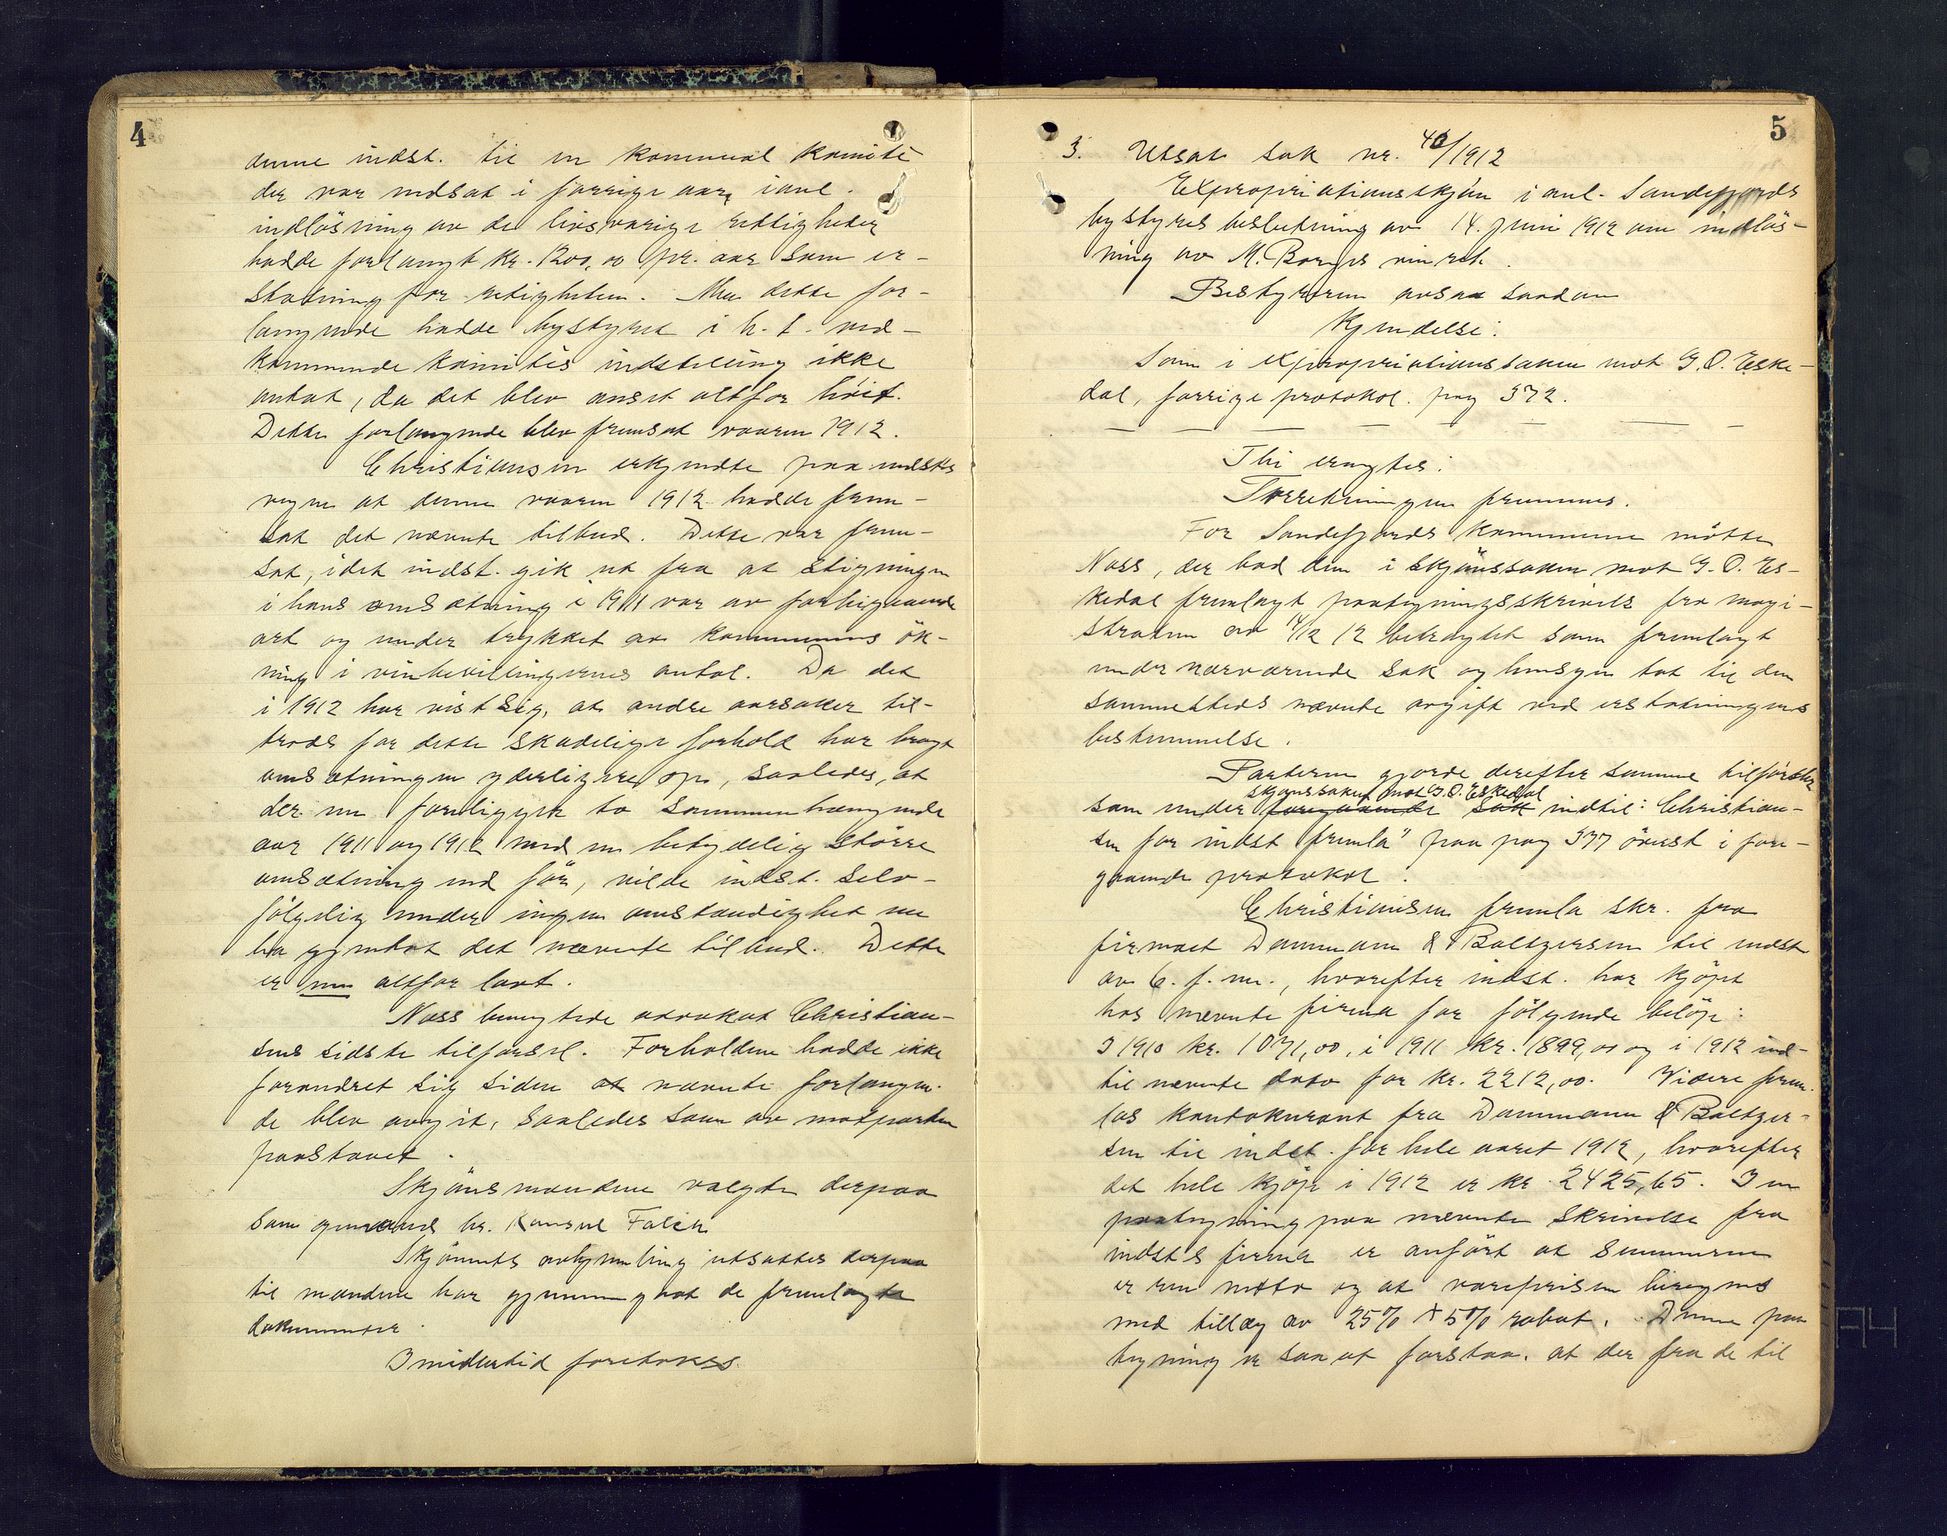 4
denne indst. til en komunal komité
der var nedsat i forrige aar, i anl.
indlösning av de livsvarige rettigheder
hadde forlangt kr. 1200,00 pr. aar som er-
statning for retigheten. Men dette for-
langende hadde bystyret i h. t. ved-
kommende komités indstilling ikke
antat, da det blev anset altfor höit.
Dette forlangende blev fremsat vaaren 1912.
Christiansen erkjendte paa indsts
vegne at denne vaaren 1912 hadde frem-
sat det nævnte tilbud. Dette var frem-
sat, idet indst. gik ut fra at stigningen
i hans omsætning i 1911 var av forbigaaende
art og under trykket av kommunens ök-
ning i vinbevillingernes antal. Da det
i 1912 har vist sig, at andre aarsaker til-
trods for dette skadelige forhold har bragt
omsætningen yderligere op, saaledes, at
der nu foreligger to sammenhængende
aar 1911 og 1912 med en betydelig större
omsætning end för, vilde indst. selv-
fölgelig under ingen omstændighet nu
ha gjentat det nævnte tilbud. Dette
er nu altfor lavt.
Nass benegtede advokat Christian-
sens sidste tilförsel. Forholdene hadde ikke
forandret sig siden at nævnte forlangen-
de blev avgit, saaledes som av motparten
paastaaet.
Skjönsmændene valgte derpaa
som opmand hr. konsul Falch
Skjönnets avhjemling utsattes derpaa
til mændene har gjennemgaat de fremlagte
dokumenter.
Imidlertid foretokes
5
3. Utsat sak nr. 40/1912
Expropriationsskjön i anl. Sandefjords
bystyres beslutning av 14. juni 1912 om indlös-
ning av M. Borges vinret.
Bestyreren avsa saadan
Kjendelse:
Som i expropriationssaken mot G. O. Eske-
dal, forrige protokol. pag 372.
Thi eragtes:
Forretningen fremmes.
For Sandefjords kommune mötte
Nass, der bad den i skjönssaken mot G. O. Es-
kedal fremlagt paategningsskrivelse fra magi-
straten av 4/12 12 betragtet som fremlagt
under nærværende sak og hensyn tat til den
sammesteds nævnte avgift ved erstatningens
bestemmelse.
Parterne gjorde derefter samme tilförsler
skjönssaken mot G. O. Eskedal
som under foregaaende sak indtil: Christian-
sen for indst fremla" paa pag 377 överst i fore-
gaaende protokol.
Christiansen fremla skr. fra
firmaet Dammann & Baltzersen til indst
av 6. f. m., hvorefter indst. har kjöpt
hos nævnte firma for fölgende belöp:
I 1910 kr. 1071,00, i 1911 kr. 1899,00 og i 1912 ind-
til nævnte dato for kr. 2212,00. Videre frem-
las kontokurant fra Dammann & Baltzer-
sen til indst. for hele aaret 1912, hvorefter
det hele kjöp i 1912 er kr. 2425,65. I en
paategning paa nævnte skrivelse fra
indsts firma er anfört at summerne
er ren netto og at vareprisen beregnes
med tillæg av 25% + 5% rabat. Denne paa-
tegning er saa at forstaa, at der fra de til